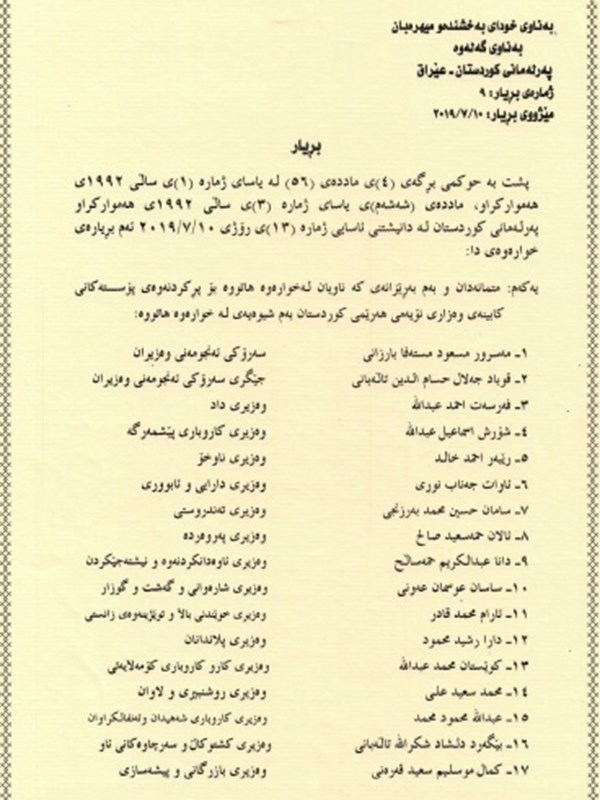 بەناوی خودای بەخشندەو میهرەبان
بەناوی گەلەوە
پەرلەمانی کوردستان ـ عێراق
ژمارەی بڕیار: ٩
مێژووی بڕیار: ٢٠١٩/٧/١٠
بڕیار
پشت بە حوکمی بڕگەی (٤)ی ماددەی (٥٦) لە یاسای ژمارە (١)ی ساڵی ١٩٩٢ی
هەموارکراو، ماددەی (شەشەم)ی یاسای ژمارە (٣)ی ساڵی ١٩٩٢ی هەموارکراو
پەرلەمانی کوردستان لە دانیشتنی ئاسایی ژمارە (١٣)ی رۆژی ٢٠١٩/٧/١٠ ئەم بڕیارەی
خوارەوەی دا:
یەکەم: متمانەدان و بەم بەڕێزانەی کە ناویان لەخوارەوە هاتووە بۆ پڕکردنەوەی پۆستەکانی
کابینەی وەزاری نۆیەمی هەرێمی کوردستان بەم شیوەیەی لە خوارەوە هاتووە:
١ـ مەسرور مسعود مستەفا بارزانی سەرۆکی ئەنجومەنی وەزیران
٢ـ قوباد جەلال حسام الدین تاڵەبانی جێگری سەرۆکی ئەنجومەنی وەزیران
٣ـ فەرسەت احمد عبدالله وەزیری داد
٤ـ شۆرش اسماعیل عبدالله وەزیری کاروباری پێشمەرگە
٥ـ رێبەر احمد خالد وەزیری ناوخۆ
٦ـ ئاوات جەناب نوری وەزیری دارایی و ئابووری
٧ـ سامان حسین محمد بەرزنجی وەزیری تەندروستی
٨ـ ئالان حمەسعید صالح وەزیری پەروەردە
٩ـ دانا عبدالکریم حمەساڵح وەزیری ئاوەدانکردنەوە و نیشتەجێکردن
١٠ـ ساسان عوسمان عەونی وەزیری شارەوانی و گەشت و گوزار
١١ـ ئارام محمد قادر وەزیری خوێندنی باڵا و توێژینەوەی زانستی
١٢ـ دارا رشید محمود وەزیری پلاندانان
١٣ـ کوێستان محمد عبدالله وەزیری کارو کاروباری کۆمەلایەتی
١٤ـ محمد سعید علی وەزیری روشنبیری و لاوان
١٥ـ عبدالله محمود محمد وەزیری کاروباری شەهیدان وئەنفالکراوان
١٦ـ بێگەرد دلشاد شکرالله تاڵەبانی وەزیری کشتوکاڵ و سەرچاوەکانی ئاو
١٧ـ کمال موسلیم سعید قەرەنی وەزیری بازرگانی و پیشەسازی